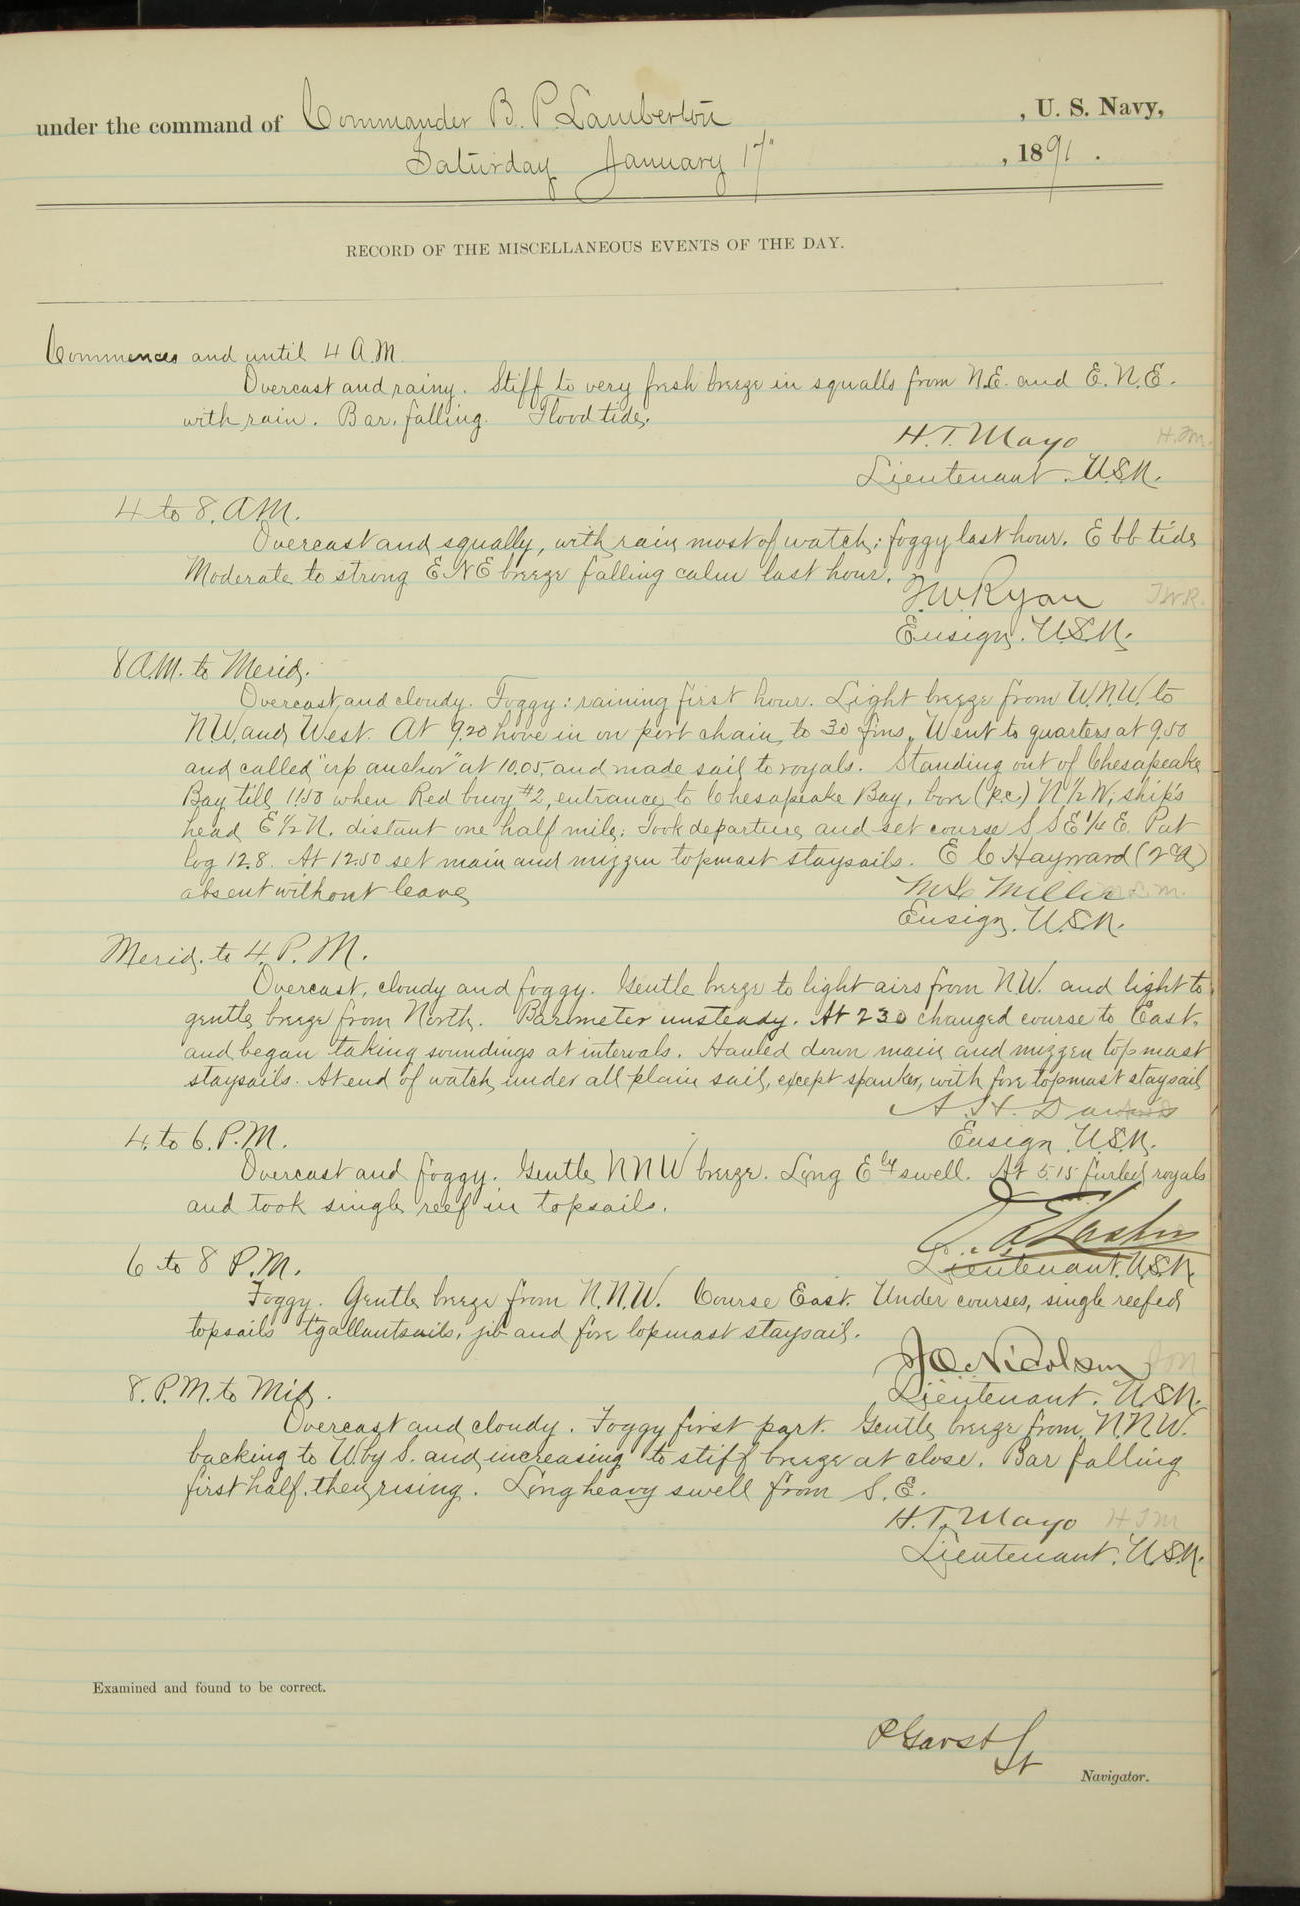 under the command of Commander B. P. Lamberton, U. S. Navy,
Saturday January 17", 1891.
RECORD OF THE MISCELLANEOUS EVENTS OF THE DAY.
Commences and until 4 A.M.
Overcast and rainy. Stiff to very fresh breeze in squalls from N.E. and E.N.E.
with rain. Bar. falling. Flood tide.
H. T. Mayo H.T.M.
Lieutenant. U.S.N.
4 to 8. A.M.
Overcast and squally, with rain most of watch; foggy last hour. Ebb tide
Moderate to strong ENE breeze falling calm last hour.
T.W. Ryan T.W.R.
Ensign. U.S.N.
8 A.M. to Merid.
Overcast, and cloudy. Foggy: raining first hour. Light breeze from W.N.W. to
N.W. and West. At 9.20 hove in on port chain, to 30 fms. Went to quarters at 9.50
and called "up anchor" at 10.05, and made sail to royals. Standing out of Chesapeake
Bay till 11.50 when Red buoy #2, entrance to Chesapeake Bay, bore (p.c.) N 1/2 W; ship's
head E 1/2 N. distant one half mile; Took departure and set course S S E 1/4 E. Pat
log 12.8. At 12.50 set main and mizzen topmast staysails. E C Hayward (2 a)
absent without leave
M L Miller M.L.M.
Ensign. U.S.N.
Merid. to 4. P. M.
Overcast, cloudy and foggy. Gentle breeze to light airs from N.W. and light to
gentle breeze from North. Barometer unsteady. At 2 30 changed course to East.
and began taking soundings at intervals. Hauled down main and mizzen topmast
staysails. At end of watch under all plain sail, except spanker, with fore topmast staysail
A. H. Davis
Ensign. U.S.N.
4. to 6. P. M.
Overcast and foggy. Gentle N N W breeze. Long Ely swell. At 5.15 furled royals
and took single reef in topsails.
Lieutenant. U.S.N.
6 to 8 P.M.
Foggy. Gentle breeze from N.N.W. Course East. Under courses, single reefed
topsails t'gallantsails, jib and fore topmast staysail.
J O Nicolson JON
Lieutenant. U.S.N.
8. P.M. to Mid.
Overcast and cloudy. Foggy first part. Gentle breeze from N.N.W.
backing to W. by S. and increasing to stiff breeze at close. Bar falling
first half, then rising. Long heavy swell from S.E.
H. T. Mayo H T M
Lieutenant. U.S.N.
Examined and found to be correct.
P Garst Lt
Navigator.